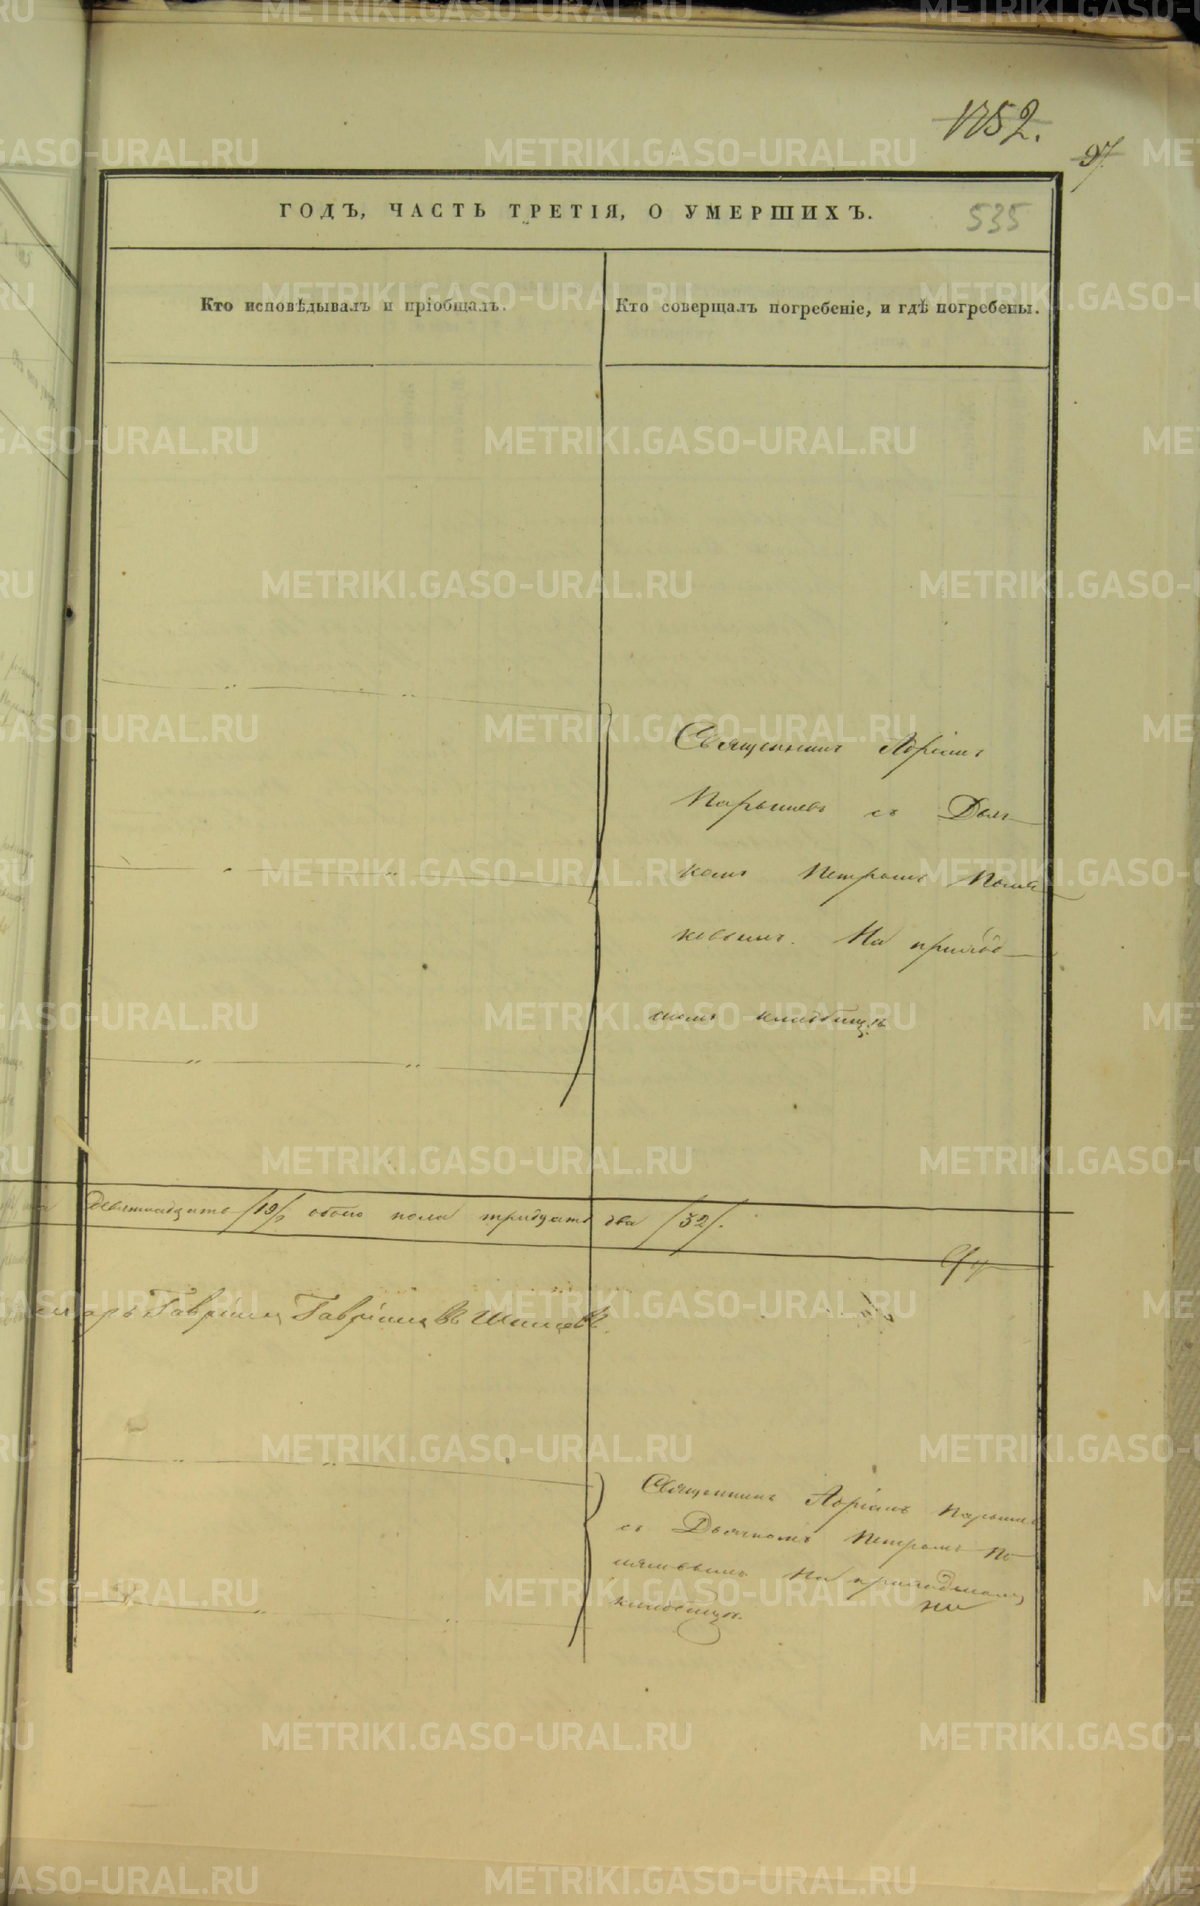 1152.
97
ГОДЪ, ЧАСТЬ ТРЕТІЯ, О УМЕРШИХЪ.
535
Кто исповѣдывалъ и пріобщалъ.
Кто совершалъ погребеніе, и гдѣ погребены.
Священникъ Адріанъ
Парышевъ съ Дьяч-
комъ Петромъ Поля-
ковымъ. На приход-
скомъ кладбищѣ
девятнадцать /19/ обоего пола тридцать два /32/.
Гавріилъ Гавріиловъ Шишевъ.
Священникъ Адріанъ Парышевъ
съ Дьячкомъ Петромъ По-
ляковымъ На приходскомъ
кладбищѣ.
METRIKI.GASO-URAL.RU